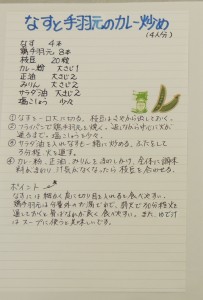 なすと手羽元のカレー炒め
(4人分)
なす 4本
鶏手羽元 8本
枝豆 20粒
カレー粉 大さじ1
正油 大さじ2
みりん 大さじ2
サラダ油 大さじ2
塩こしょう 少々
①なすを一口大に切る。枝豆はさやから出しておく。
②フライパンで鶏手羽元を焼く。途中から中に火が
通るまで。塩こしょう少々。
③サラダ油を入れなすを一緒に炒める。ふたをして
5分程火を通す。
④カレー粉、正油、みりんをまわしかけ、全体に調味
料がまわり、汁気がなくなったら枝豆を合わせる。
ポイント
なすには細かく長に切り目を入れると食べやすい。
鶏手羽元は骨
火を通しておくと骨ばなれが良く食べやすい。また、ゆで汁
はスープに使うと美味しいです。